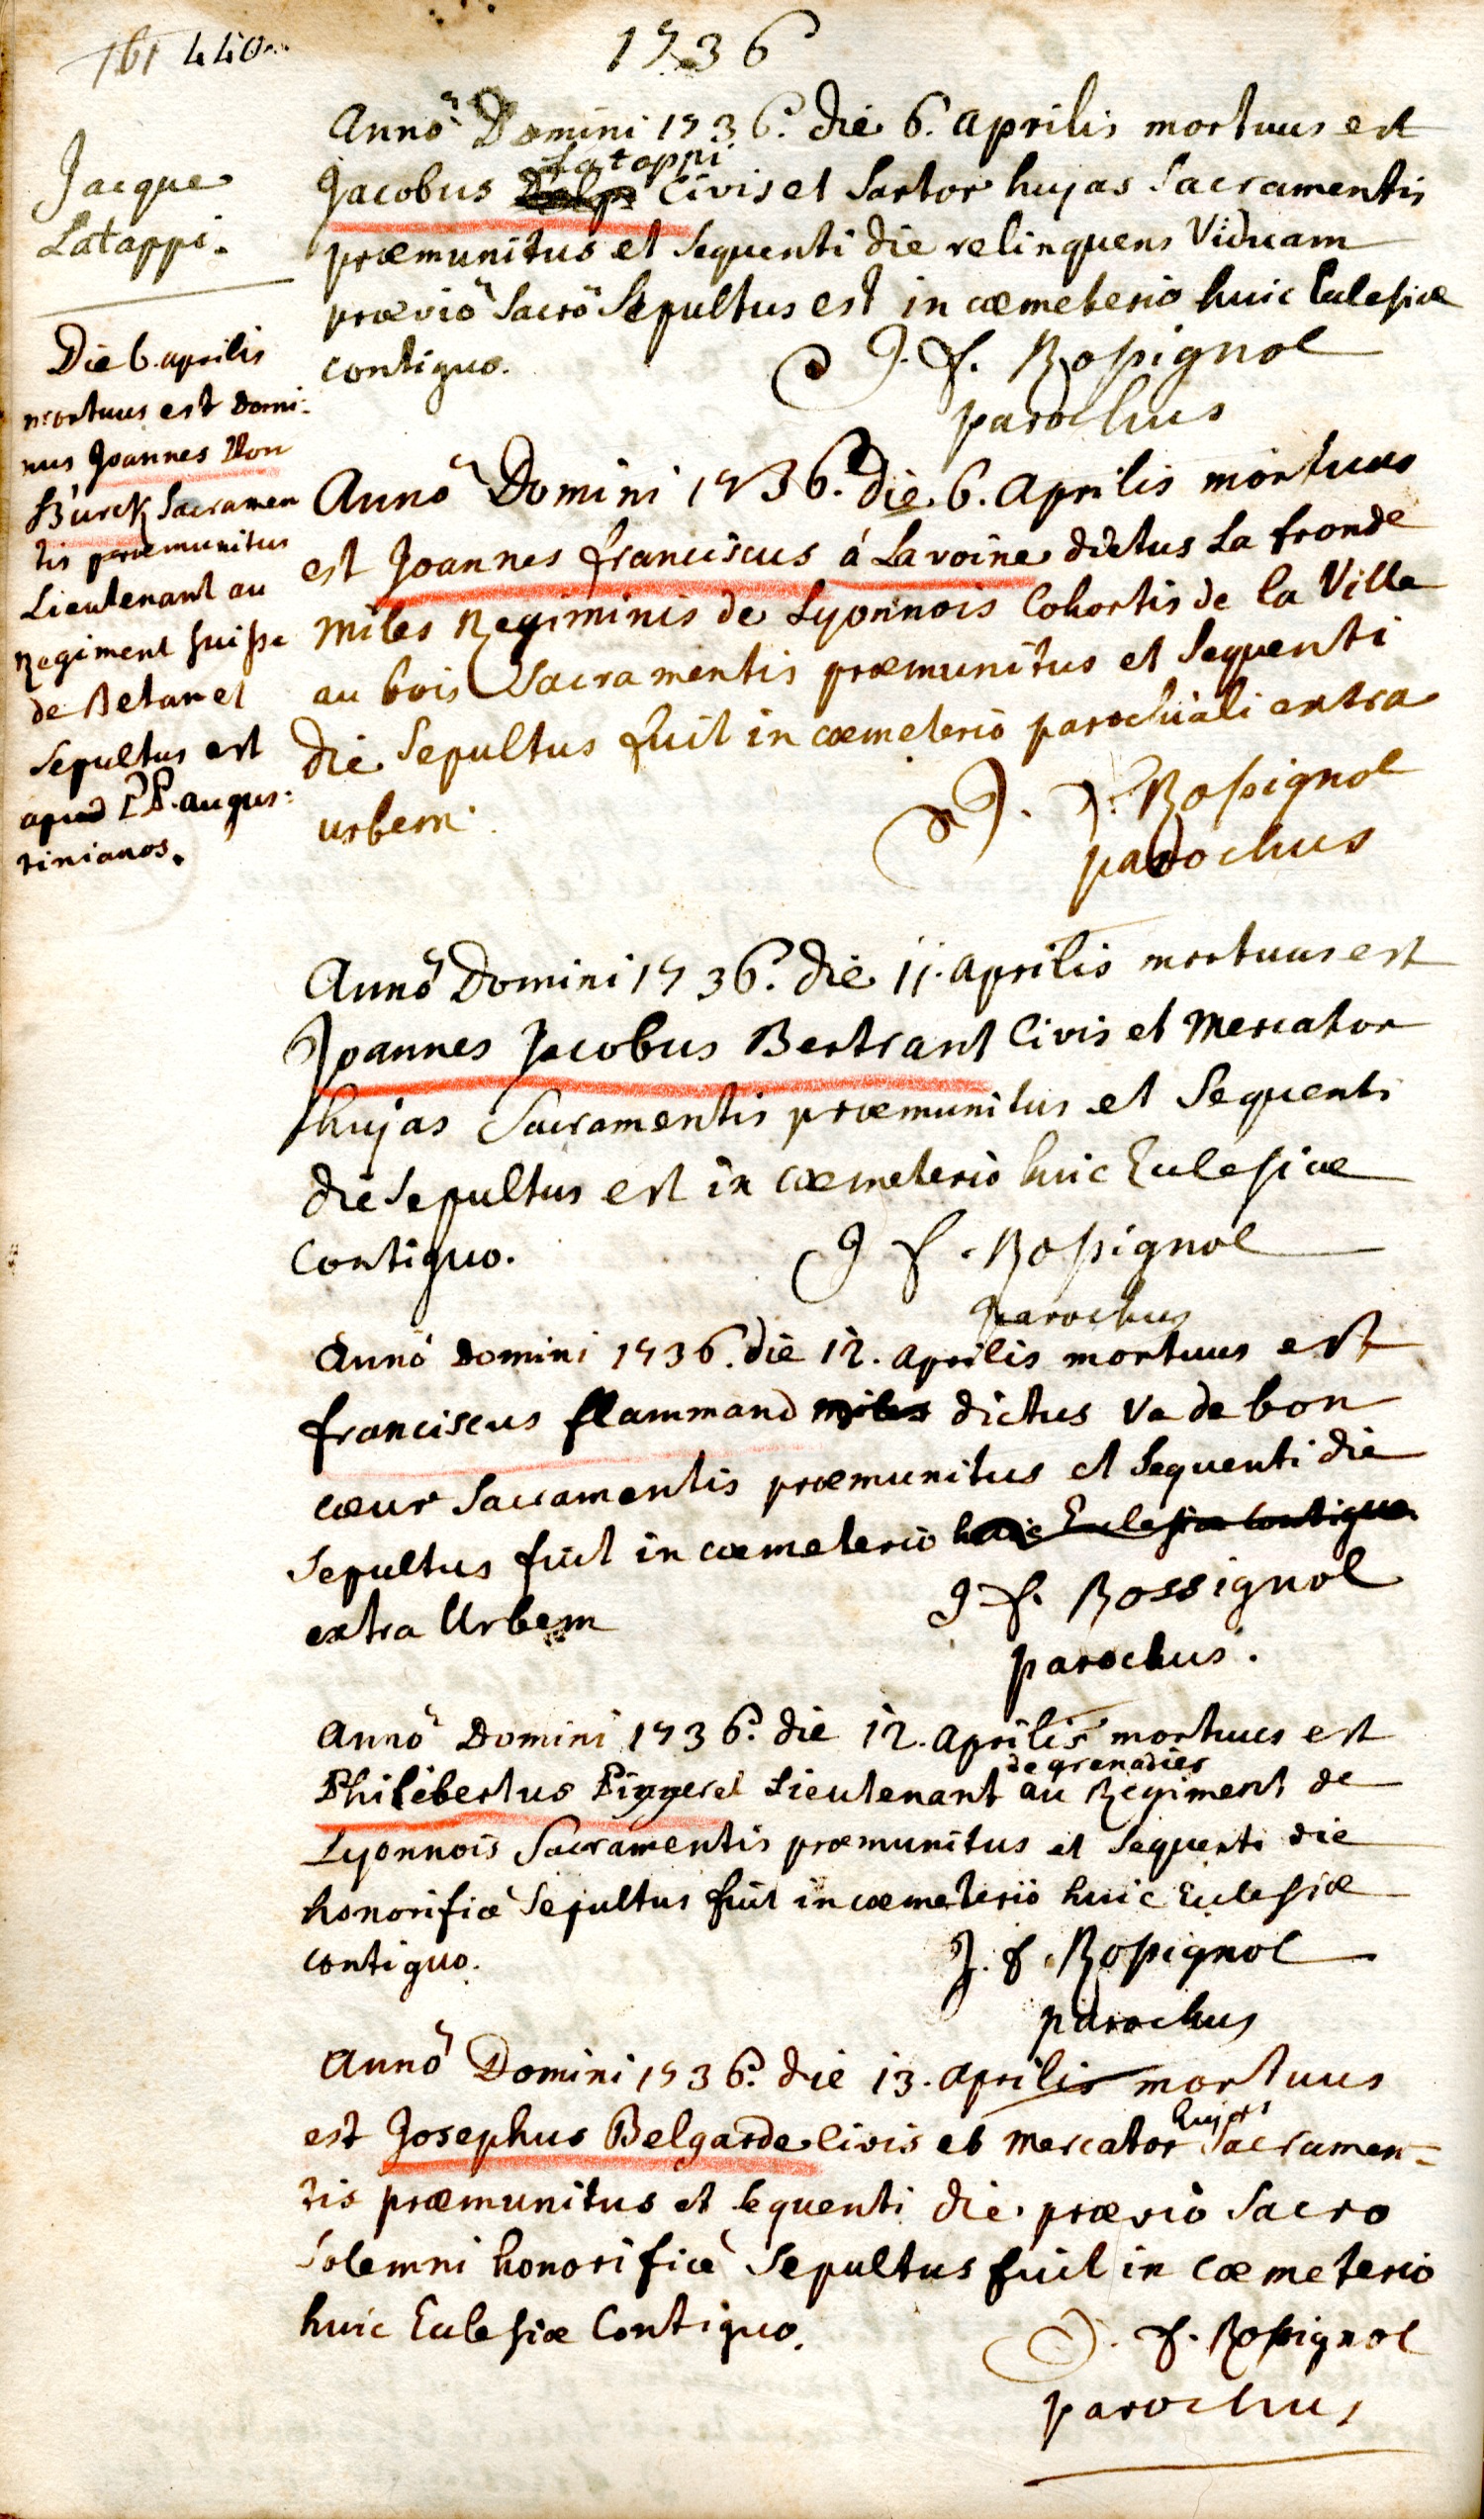 161
1736
Jacque
Latappi.
Annō Domini 1736. die 6. aprilis mortuus est
Latappi
Jacobus Civis et Sartor hujas Sacramentis
præmunitus et sequenti die relinquens Viduam
præviō Sacrō Sepultus est in cœmeterio huic Eclesiæ
contiguo.
J. f. Rossignol
parochus
Die 6. aprilis
mortuus est Domi-
nus Joannes Von
Bürck Sacramen
tis præmunitus
Lieutenant au
Regiment suisse
de Betan et
sepultus est
apud PP. augus:
tinianos.
Annō Domini 1736. die. 6. Aprilis mortuus
est Joannes franciscus á Lavoine dictus La fronde
Miles Regiminis de Lyonnois Cohortis de la Ville
au bois Sacramentis præmunitus et Sequenti
die Sepultus fuit in cœmeterio parochiali extra
urbem.
J. f. Rossignol
parochus
Annō Domini 1736. die 11. aprilis mortuus est
Joannes Jacobus Bertrant Civis et Mercator
hujas Sacramentis præmunitus et Sequenti
die Sepultus est in cœmeterio huic Eclesiæ
Contiguo.
J f. Rossignol
parochus
Annō Domini 1736. die 12. aprilis mortuus est
franciscus flammand miles dictus Va de bon
cœur Sacramentis præmunitus et Sequenti die
Sepultus fuit in cœmeterio huic Eclesiæ contiguo
extra Urbem
J f. Rossignol
parochus.
Annō Domini 1736. die 12. aprilis mortuus est
de grenadier
Philibertus Pingeret Lieutenant au Regiment de
Lyonnois Sacramentis præmunitus et Sequenti die
honorificè Sepultus fuit in cœmeterio huic Eclesiæ
contiguo.
J. f. Rossignol
parochus
Annō Domini 1736. die 13. aprilis mortuus
hujas
est Josephus Belgarde civis et Mercator Sacramen-
tis præmunitus et sequenti die prævio Sacro
Solemni honorificè Sepultus fuit in cœmeterio
huic Eclesiæ Contiguo.
J. f. Rossignol
parochus